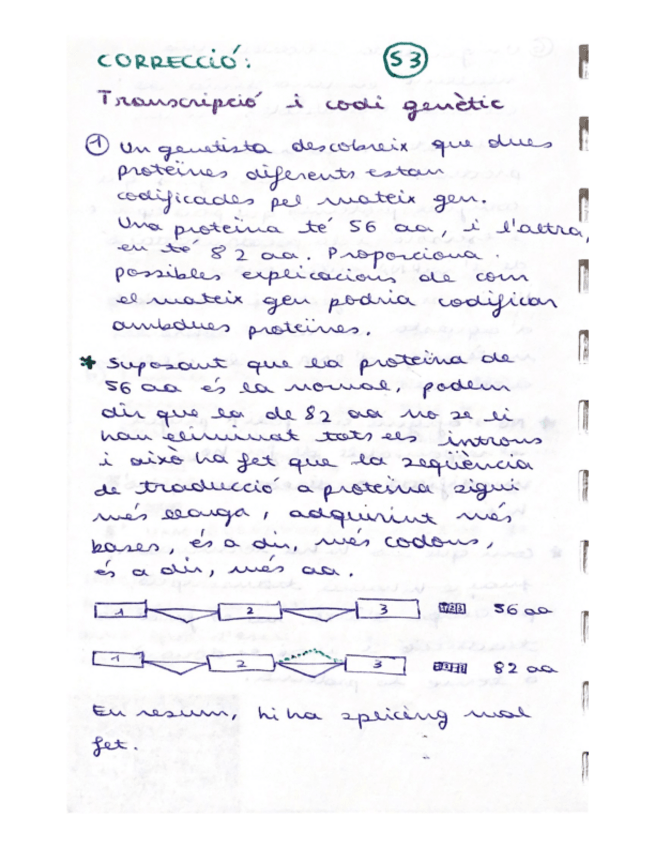 CORRECCIÓ:
S3
Transcripció i codi genètic
1 Un genetista descobreix que dues
proteïnes diferents estan
codificades pel mateix gen.
Una proteïna té 56 aa, i l'altra,
en té 82 aa. Proporciona
possibles explicacions de com
el mateix gen podria codificar
ambdues proteïnes.
* Suposant que la proteïna de
56 aa és la normal, podem
dir que la de 82 aa no se li
han eliminat tots els introns
i això ha fet que la seqüència
de traducció a proteïna sigui
més llarga, adquirint més
bases, és a dir, més codons,
és a dir, més aa.
1 2 3 123 56 aa
1 2 3 82 aa
En resum, hi ha splicing mal
fet.